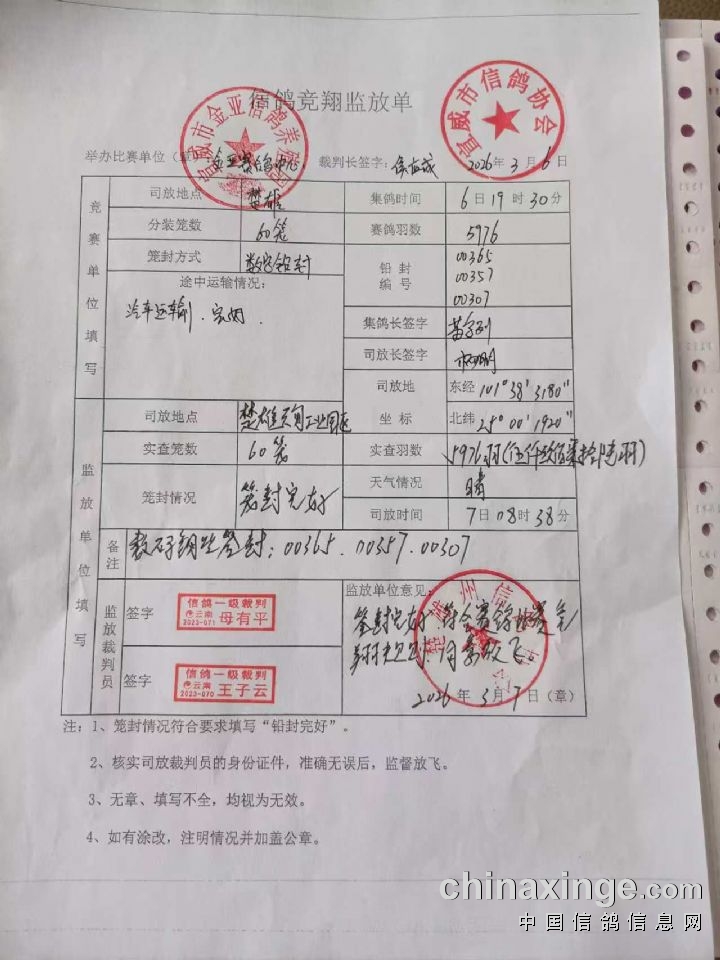 信鸽竞翔监放单
宣威市金亚信鸽养殖
宣威市信鸽协会
举办比赛单位（章） 金亚赛鸽中心 裁判长签字： 2026年3月6日
竞赛单位填写
司放地点 楚雄 集鸽时间 6日19时30分
分装笼数 60笼 赛鸽羽数 5976
笼封方式 数字铅封 铅封编号 00365
00357
00307
途中运输情况：
汽车运输、完好.
集鸽长签字
司放长签字
司放地坐标 东经 101°38′3180″
北纬 25°00′1920″
监放单位填写
司放地点 楚雄 工业园区
实查笼数 60笼 实查羽数 5976羽
笼封情况 笼封完好 天气情况 晴
司放时间 7日08时38分
备注 数码钢丝笼封：00365.00357.00307
监放裁判员
签字 信鸽一级裁判
云南
2023-071 母有平
签字 信鸽一级裁判
云南
2023-070 王子云
监放单位意见：
笼封完好 符合赛鸽竞赛
翔规则.同意放飞。
2026年3月7日（章）
注：1、笼封情况符合要求填写“铅封完好”。
2、核实司放裁判员的身份证件，准确无误后，监督放飞。
3、无章、填写不全，均视为无效。
4、如有涂改，注明情况并加盖公章。
chinaxinge.com
中国信鸽信息网